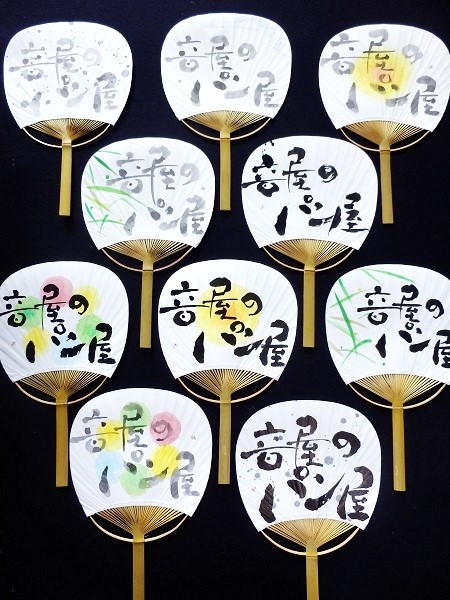 音屋の
パン屋
音屋の
パン屋
音屋の
パン屋
音屋の
パン屋
音屋の
パン屋
音屋の
パン屋
音屋の
パン屋
音屋の
パン屋
音屋の
パン屋
音屋の
パン屋